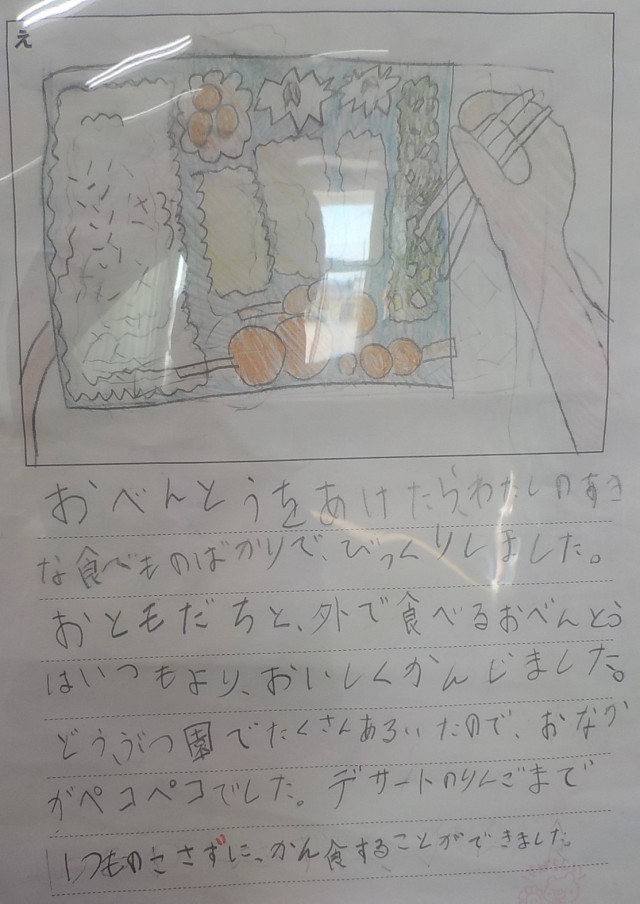 え
おべんとうをあけたら、わたしのすき
な食べものばかりで、びっくりしました。
おともだちと、外で食べるおべんとう
はいつもより、おいしくかんじました。
どうぶつ園でたくさんあるいたので、おなか
がペコペコでした。デザートのりんごまで
1つものこさずに、かん食することができました。